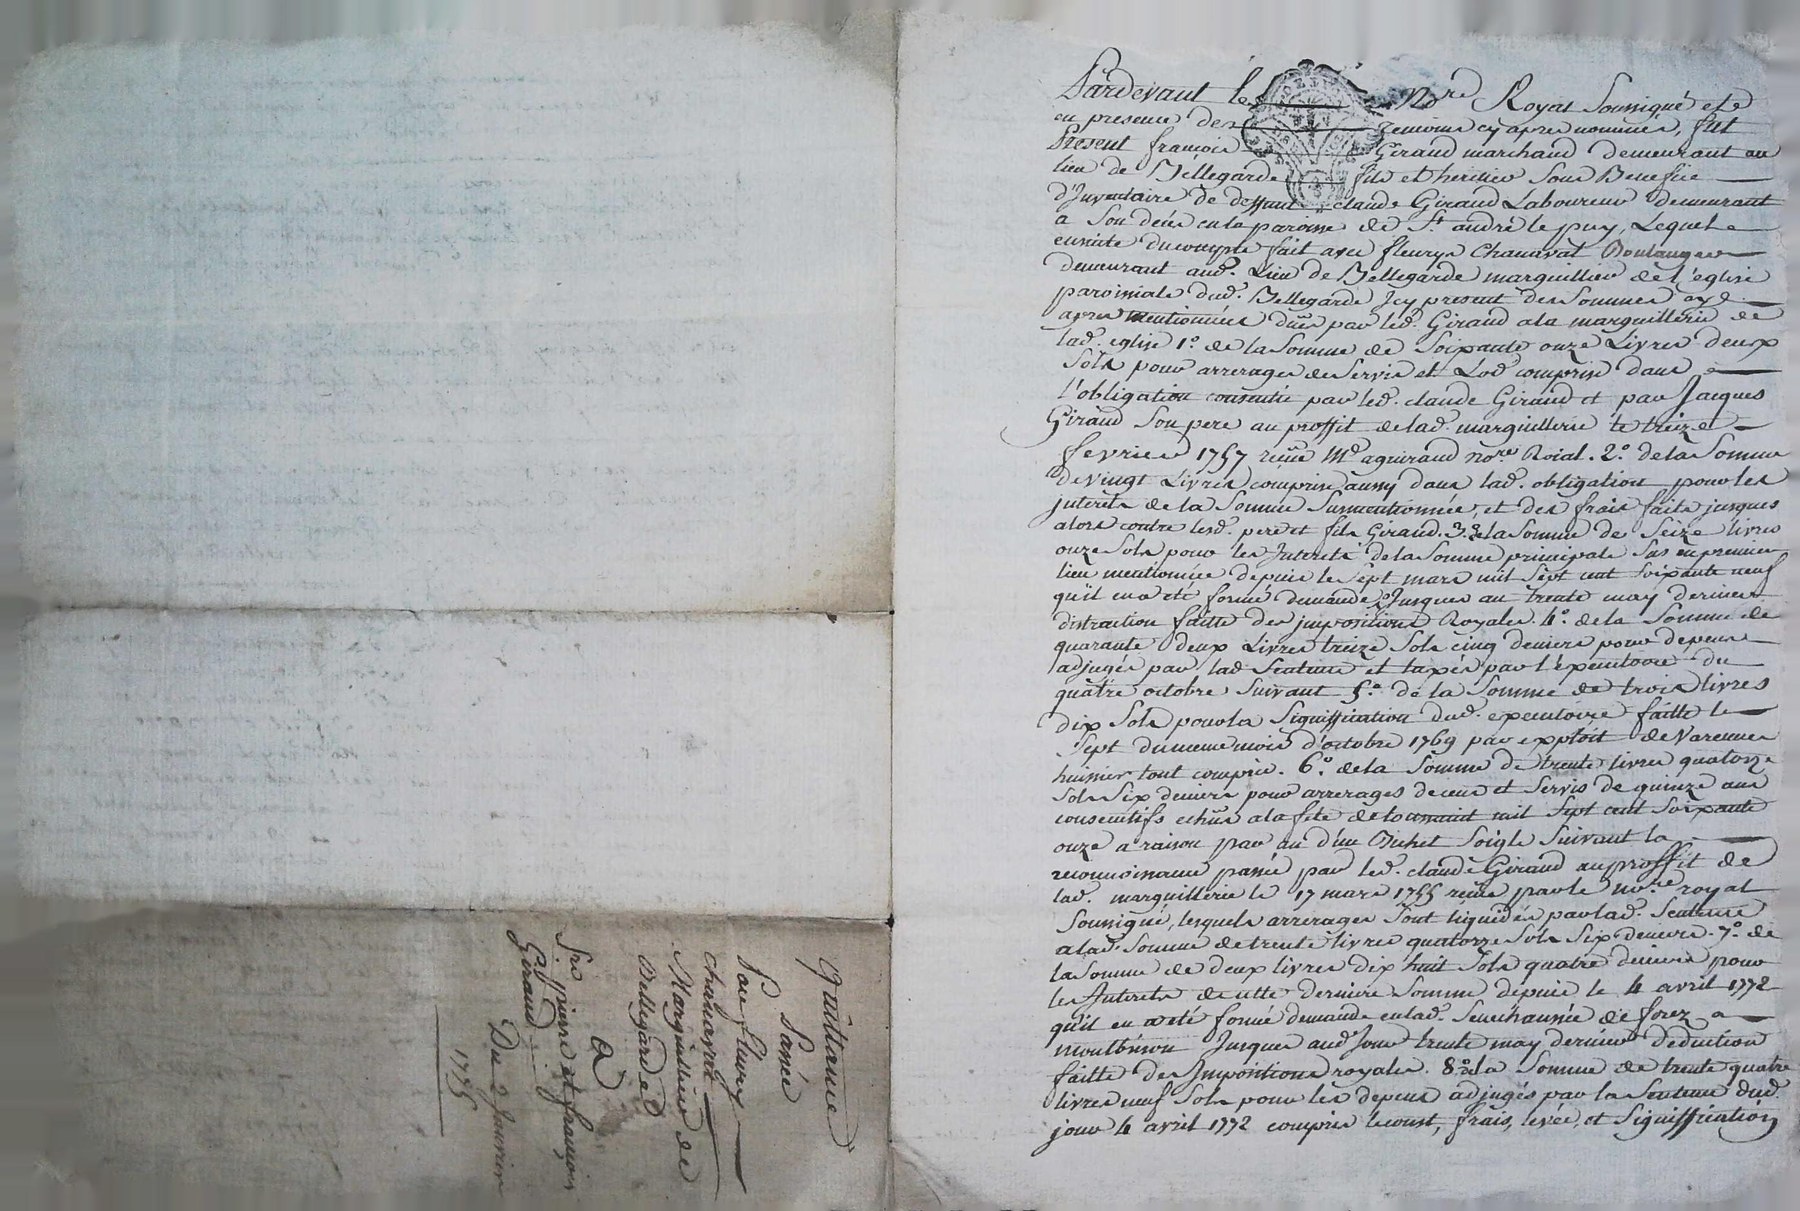 Pardevant le Nore Royal Soussigné et e
en presence des temoins cy apres nommés, fut
Present françois Giraud marchand demeurant au
lieu de Bellegarde fils et heritier Sous Benefice
d'Inventaire de deffunt claude Giraud Laboureur demeurant
a Son décés en la paroisse de St. andré le puy, Lequel
ensuite du compte fait avec fleury Chanavat Boulanger
demeurant aud. Lieu de Bellegarde marguillier de l'eglise
paroissiale dud. Bellegarde Icy present des Sommes cy
apres mentionnées dues par led. Giraud a la marguillerie de
lad. eglise 1.º de la Somme de Soixante onze Livres deux
Sols pour arrerages de Servis et Lod comprise dans
l'obligation consentie par led. claude Giraud et par Jacques
Giraud Son pere au proffit de lad. marguillerie le treize
fevrier 1757 reçüe Me aguiraud nore Roial. 2.º de la Somme
de vingt Livres comprise aussy dans lad. obligation pour les
interets de la Somme Susmentionnée, et des frais faits jusques
alors contre lesd. pere et fils Giraud. 3.º de la Somme de Seize livres
onze Sols pour les Interets de la Somme principale Sus en premier
lieu mentionnée depuis le Sept mars mil Sept cent Soixante neuf
qu'il en a eté formé demande Jusques au trente may dernier
distraction faitte des impositions Royales. 4.º de la Somme de
quarante deux Livres treize Sols cinq deniers pour depens
adjugés par lad. Sentence et taxés par l'executoire du
quatre octobre Suivant 5.º de la Somme de trois livres
dix Sols pour la Signiffication dud. executoire faitte le
Sept du meme mois d'octobre 1769 par exploit de Varennes
huissier tout compris. 6.º de la Somme de trente livres quatorze
Sols Six deniers pour arrerages de cens et Servis de quinze ans
consecutifs echus a la fete de toussaint mil Sept cent Soixante
onze a raison par an d'un Bichet Soigle Suivant la
reconnoissance passée par led. claude Giraud au proffit de
lad. marguillerie le 17 mars 1755 reçüe par le nore royal
Soussigné, lesquels arrerages Sont liquidés par lad. Sentence
a lad. Somme de trente livres quatorze Sols Six deniers. 7.º de
la Somme de deux livres dix huit Sols quatre deniers pour
les Interets de cette derniere Somme depuis le 4 avril 1772
qu'il en a eté formé demande en lad. Senechaussée de forez a
montbrison Jusques aud. Jour trente may dernier deduction
faitte des Impositions royales. 8.º de la Somme de trente quatre
livres neuf Sols pour les depens adjugés par la Sentence dud.
jour 4 avril 1772 compris le coust, frais, levée, et Signiffication
Quittance
Passée
Par fleury
chanavat
Marguillier de
Bellegarde
a
Srs pierre et françois
Giraud
Du 2 Janvier
1775